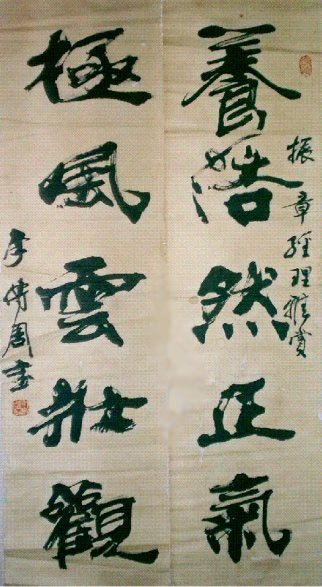 振章經理雅賞
養浩然正氣
極風雲壯觀
李傳周書